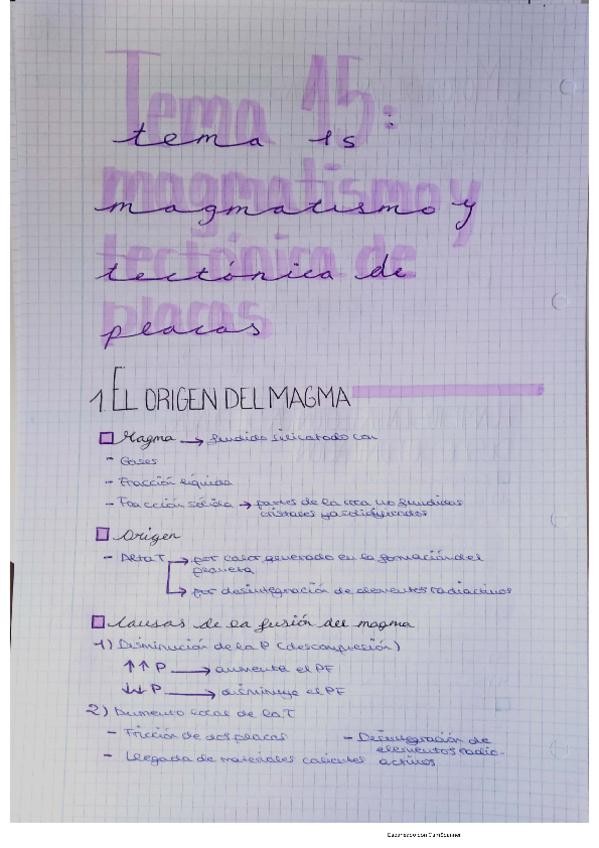 Tema 15:
magmatismo y
tectónica de
placas
tema 15
magmatismo y
tectónica de
placas
1. EL ORIGEN DEL MAGMA
Magma → fundido silicatado con
- Gases
- Fracción líquida
- Fracción sólida → partes de la roca no fundidas
cristales ya solidificados
Origen
- Alta T → por calor generado en la formación del
planeta
→ por desintegración de elementos radiactivos
Causas de la fusión del magma
1) Disminución de la P (descompresión)
↑↑ P → aumenta el PF
↓↓ P → disminuye el PF
2) Aumento local de la T
- Fricción de dos placas
- Desintegración de
elementos radio-
activos
- Llegada de materiales calientes
Escaneado con CamScanner